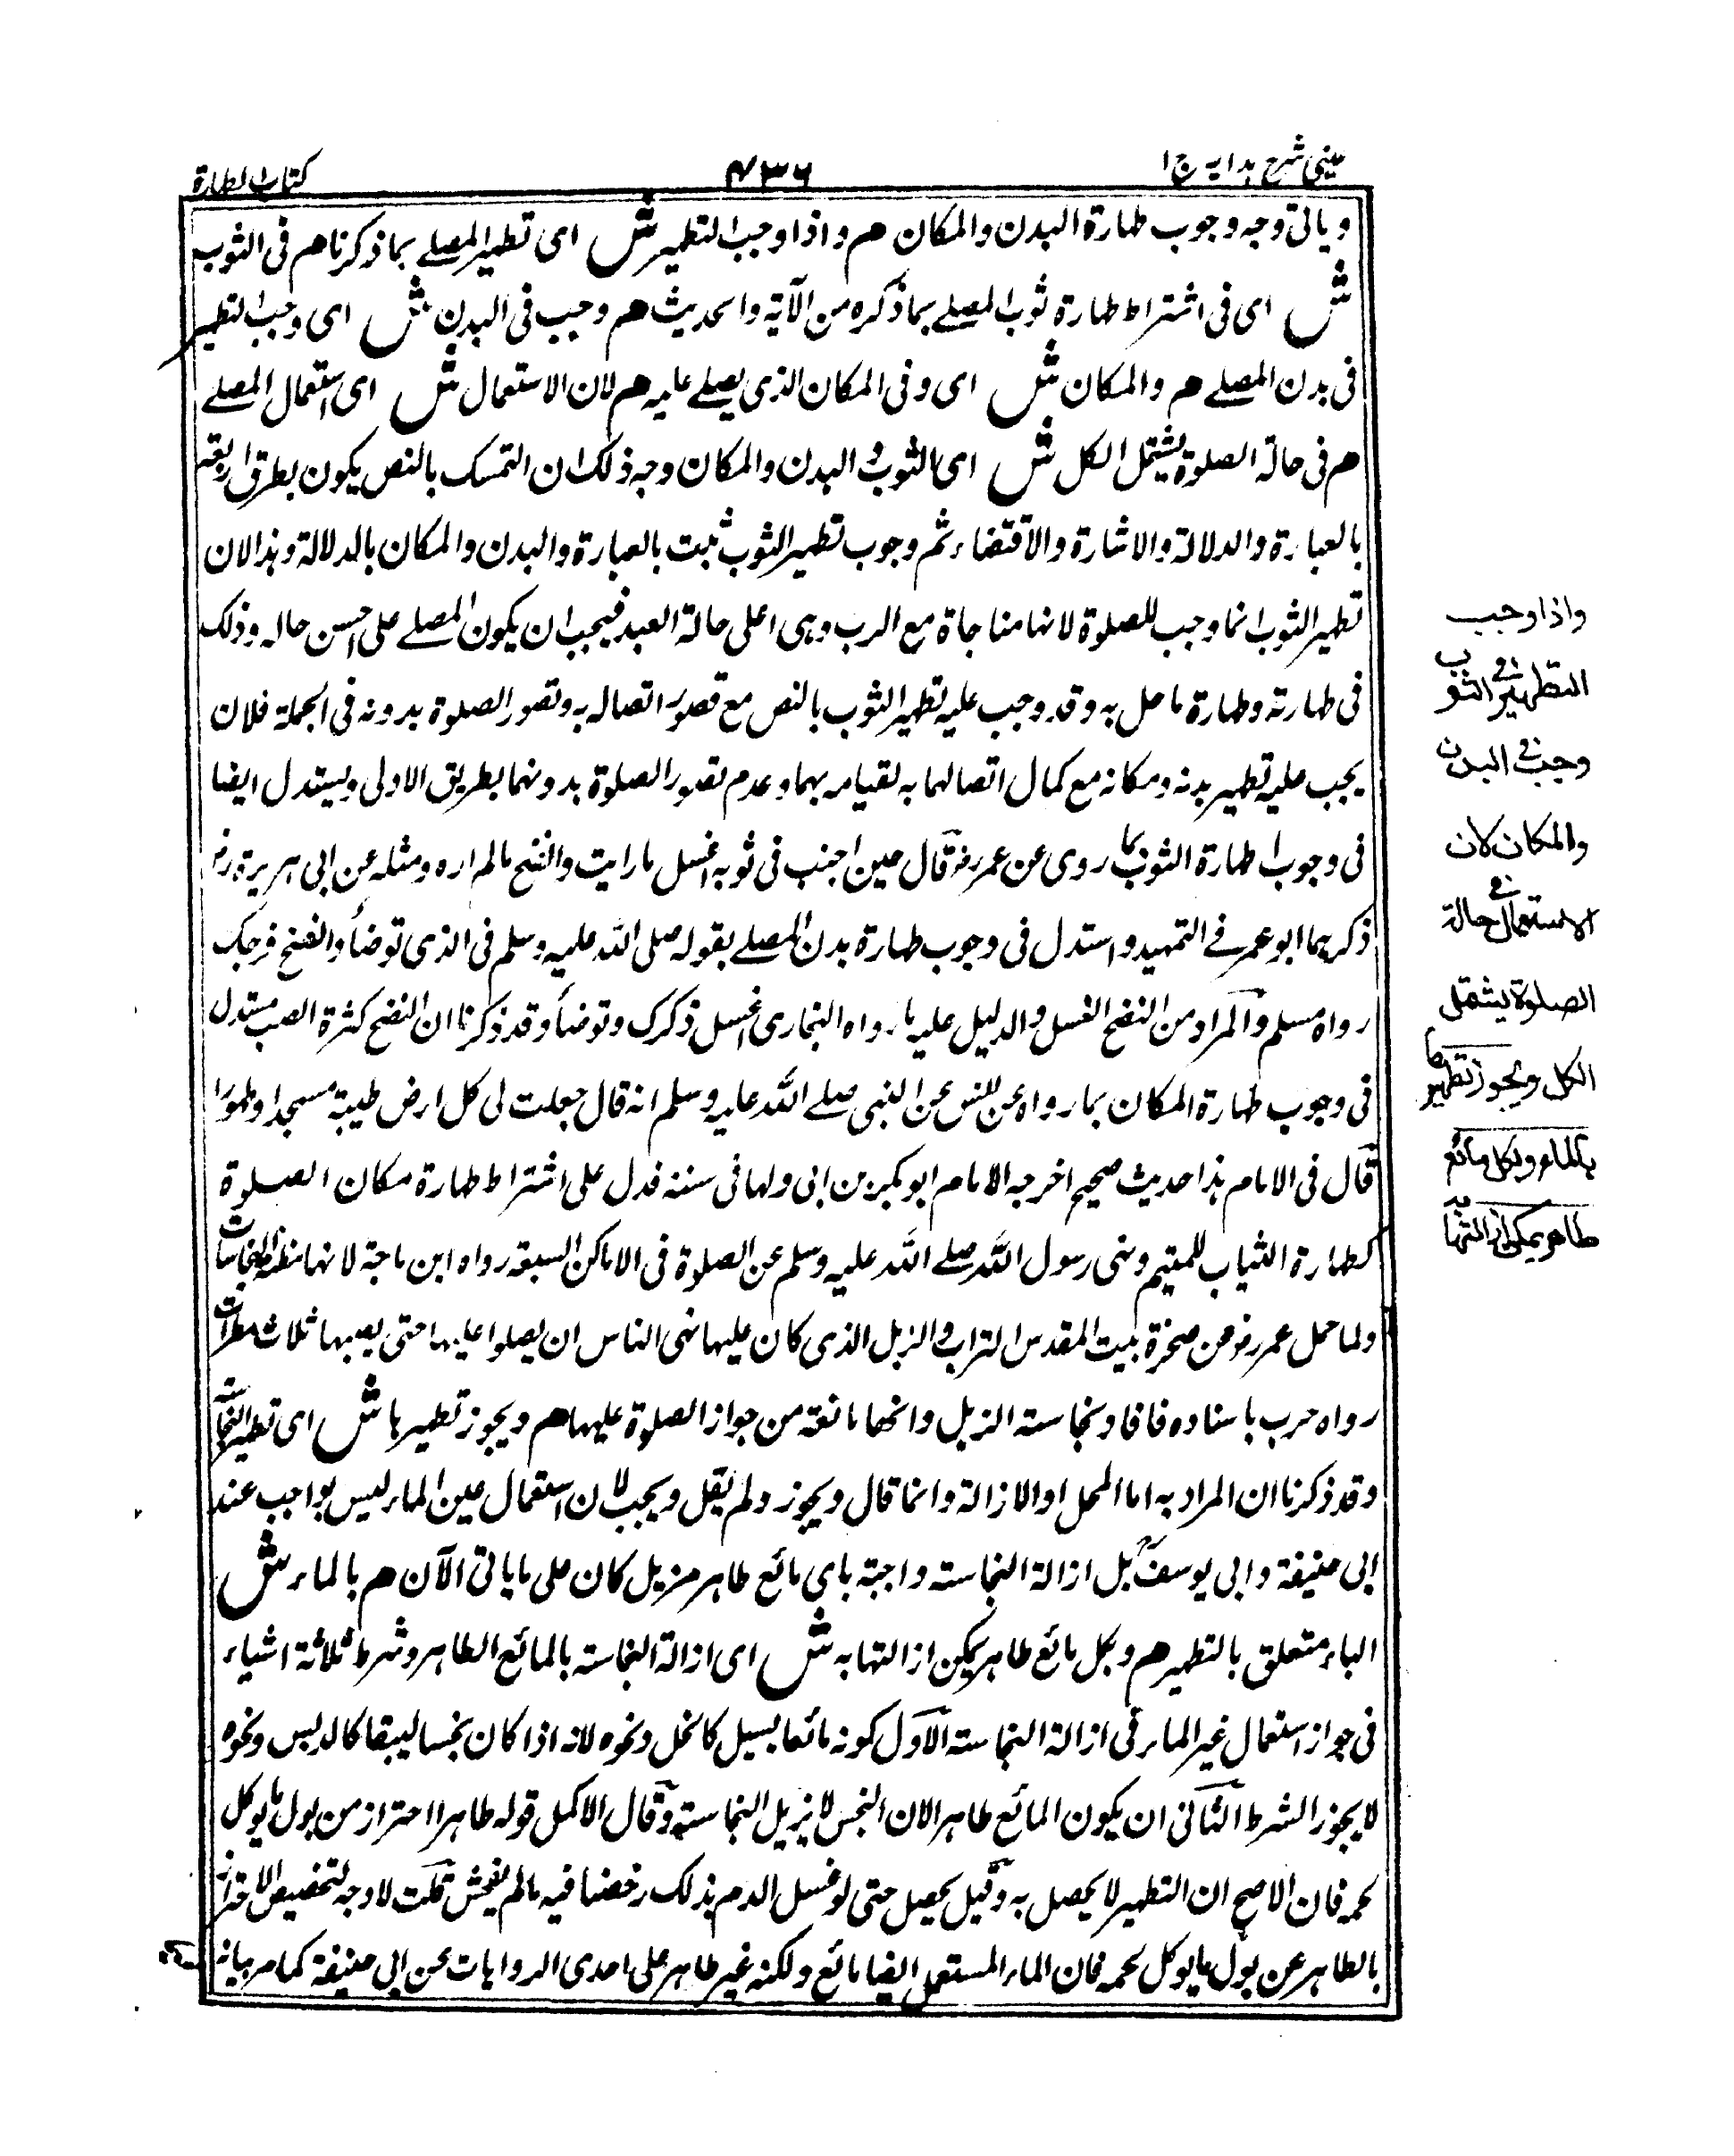 عینی شرح ہدایہ ج ا
۴۳۶
کتاب الطہارۃ
ویاتی وجہ وجوب طہارۃ البدن والمکان ھم واذا وجب التطہیر ش ای تطہیر المصلے بما ذکرنا ھم فی الثوب
ش ای فی اشتراط طہارۃ ثوب المصلے بما ذکرہ من الآیۃ والحدیث ھم وجب فی البدن ش ای وجب التطہیر
فی بدن المصلے ھم والمکان ش ای وفی المکان الذی یصلے علیہ ھم لان الاستعمال ش ای استعمال المصلے
ھم فی حالۃ الصلوۃ یشتمل الکل ش ای الثوب والبدن والمکان وجہ ذلک ان التمسک بالنص یکون بطرق اربعۃ
بالعبارۃ والدلالۃ والاشارۃ والاقتضاء ثم وجوب تطہیر الثوب ثبت بالعبارۃ والبدن والمکان بالدلالۃ وہذا لان
تطہیر الثوب انما وجب للصلوۃ لانہا مناجاۃ مع الرب وہی اعلی حالۃ العبد فیجب ان یکون المصلے علی احسن حالہ وذلک
فی طہارتہ وطہارۃ ما حل بہ وقد وجب علیہ تطہیر الثوب بالنص مع قصور اتصالہ بہ وتصور الصلوۃ بدونہ فی الجملۃ فلان
یجب علیہ تطہیر بدنہ ومکانہ مع کمال اتصالہما بہ لقیامہ بہما وعدم تصور الصلوۃ بدونہما بطریق الاولی ویستدل ایضا
فی وجوب طہارۃ الثوب بما روی عن عمر رضہ قال حین اجنب فی ثوبہ اغسل ما رایت وانضح ما لم ارہ ومثلہ عن ابی ہریرۃ رضہ
ذکرہما ابو عمر فے التمہید واستدل فی وجوب طہارۃ بدن المصلے بقولہ صلی اللہ علیہ وسلم فی الذی توضأ وانضح فرجک
رواہ مسلم والمراد من النضح الغسل والدلیل علیہ ما رواہ البخاری اغسل ذکرک وتوضأ وقد ذکرنا ان النضح کثرۃ الصب مستدل
فی وجوب طہارۃ المکان بما رواہ عن انس عن النبی صلے اللہ علیہ وسلم انہ قال جعلت لی کل ارض طیبۃ مسجدا وطہورا
قال فی الامام ہذا حدیث صحیح اخرجہ الامام ابو بکر بن ابی ولہا فی سننہ فدل علی اشتراط طہارۃ مکان الصلوۃ
کطہارۃ الثیاب للمتیم ونہی رسول اللہ صلے اللہ علیہ وسلم عن الصلوۃ فی الاماکن السبعۃ رواہ ابن ماجۃ لانہا مظنۃ النجاسات
ولما حمل عمر رضہ من صخرۃ بیت المقدس التراب والزبل الذی کان علیہا نہی الناس ان یصلوا علیہا حتی یصبہا ثلاث مطرات
رواہ حرب باسنادہ فافاد نجاستہ الزبل وانہا مانعۃ من جواز الصلوۃ علیہا ھم ویجوز تطہیرہا ش ای تطہیر النجاستہ
وقد ذکرنا ان المراد بہ اما المحل او الازالۃ وانما قال ویجوز ولم یقل ویجب لان استعمال عین الماء لیس بواجب عند
ابی حنیفۃ وابی یوسف بل ازالۃ النجاستہ واجبۃ بای مائع طاہر مزیل کان علی ما یاتی الآن ھم بالماء ش
الباء متعلق بالتطہیر ھم وبکل مائع طاہر یمکن ازالتہا بہ ش ای ازالۃ النجاستہ بالمائع الطاہر وشرط ثلاثۃ اشیاء
فی جواز استعمال غیر الماء فی ازالۃ النجاستہ الاول کونہ مائعا یسیل کالخل ونحوہ لانہ اذا کان نجسا لیبقا کالدبس ونحوہ
لا یجوز الشرط الثانی ان یکون المائع طاہرا لان النجس لا یزیل النجاستہ وقال الاکمل قولہ طاہرا احتراز من بول ما یوکل
لحمہ فان الاصح ان التطہیر لا یحصل بہ وقیل یحصل حتی لو غسل الدم بذلک رخصنا فیہ ما لم یفحش قلت لا وجہ لتخصیص الاحتراز
بالطاہر عن بول ما یوکل لحمہ فان الماء المستعمل ایضا مائع ولکنہ غیر طاہر علی احدی الروایات عن ابی حنیفۃ کما مر بیانہ
واذا وجب
التطہیر فی الثوب
وجب فی البدن
والمکان لان
الاستعمال فی حالۃ
الصلوۃ یشتمل
الکل ویجوز تطہیرہا
بالماء وبکل مائع
طاہر یمکن ازالتہا بہ